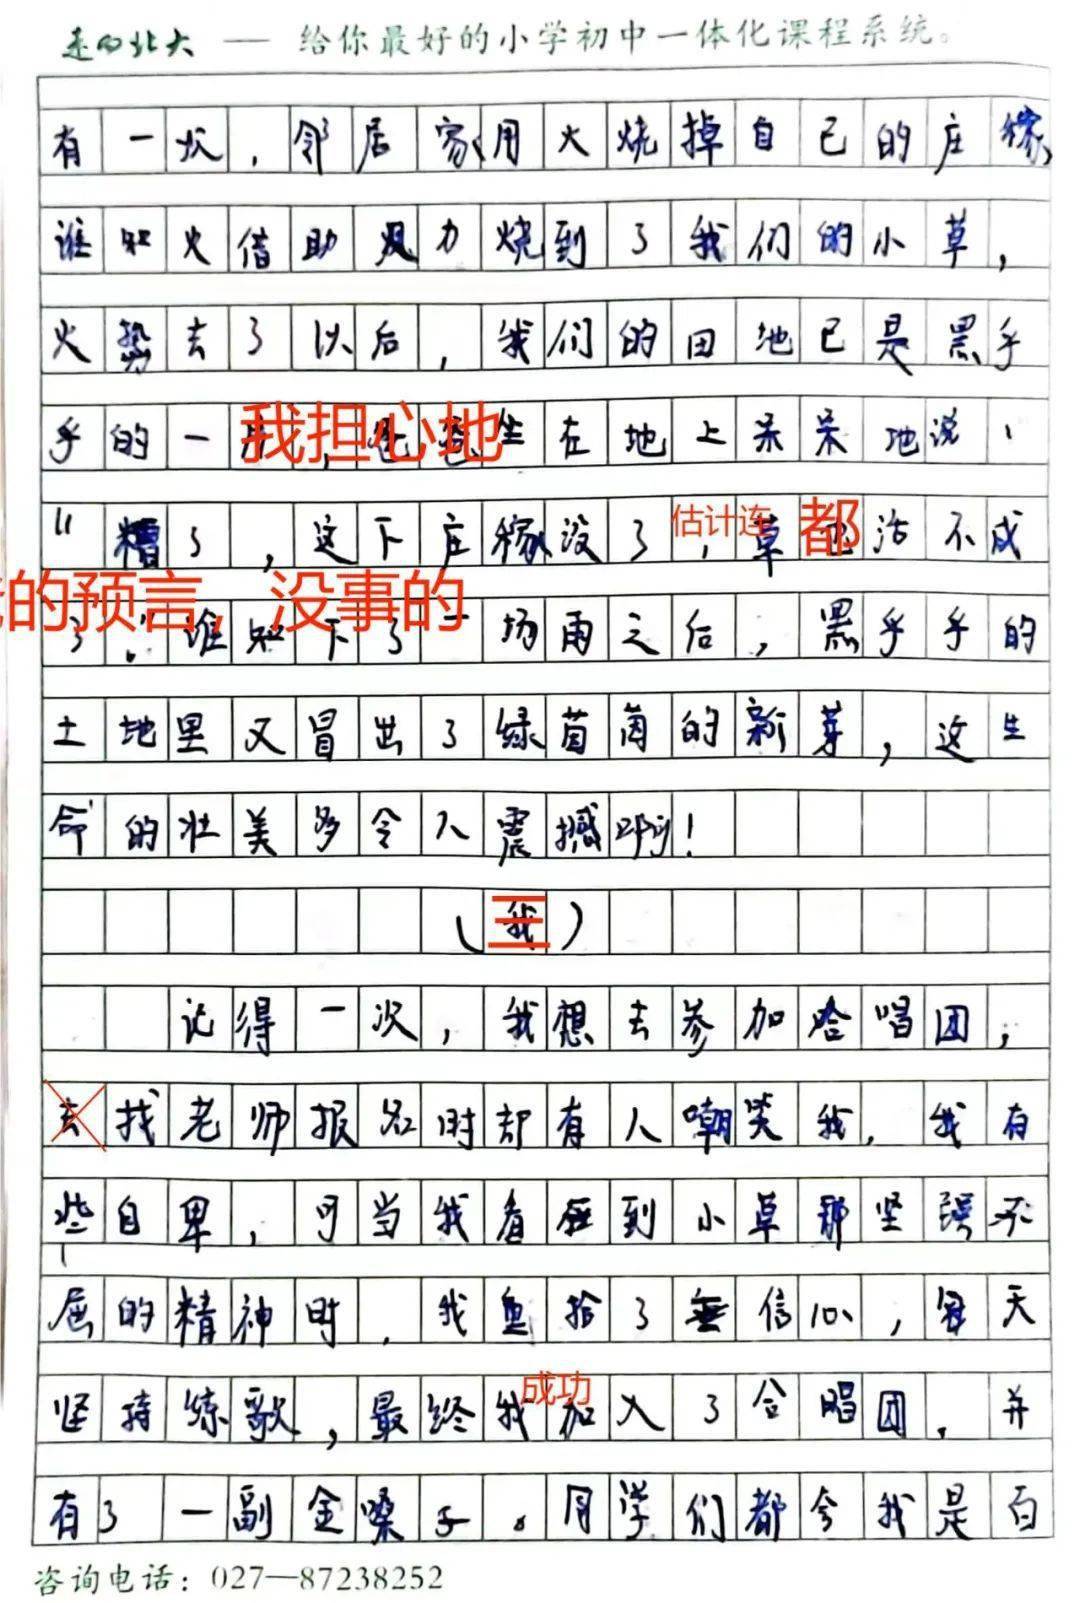 走向北大 — 给你最好的小学初中一体化课程系统。
有一次,邻居家用火烧掉自己的庄稼,
谁知火借助风力烧到了我们的小草,
火势去了以后,我们的田地已是黑乎
我担心地
乎的一片,爸爸坐在地上呆呆地说:
估计连 都
“糟了,这下庄稼没了,草也活不成
的预言,没事的
了。”谁知下了一场雨之后,黑乎乎的
土地里又冒出了绿茵茵的新芽,这生
命的壮美多令人震撼啊!
(我)
三
记得一次,我想去参加合唱团,
去找老师报名时却有人嘲笑我,我有
些自卑,可当我看到小草那坚强不
屈的精神时,我重拾了信心,每天
成功
坚持练歌,最终我加入了合唱团,并
有了一副金嗓子。同学们都夸我是百
咨询电话:027—87238252